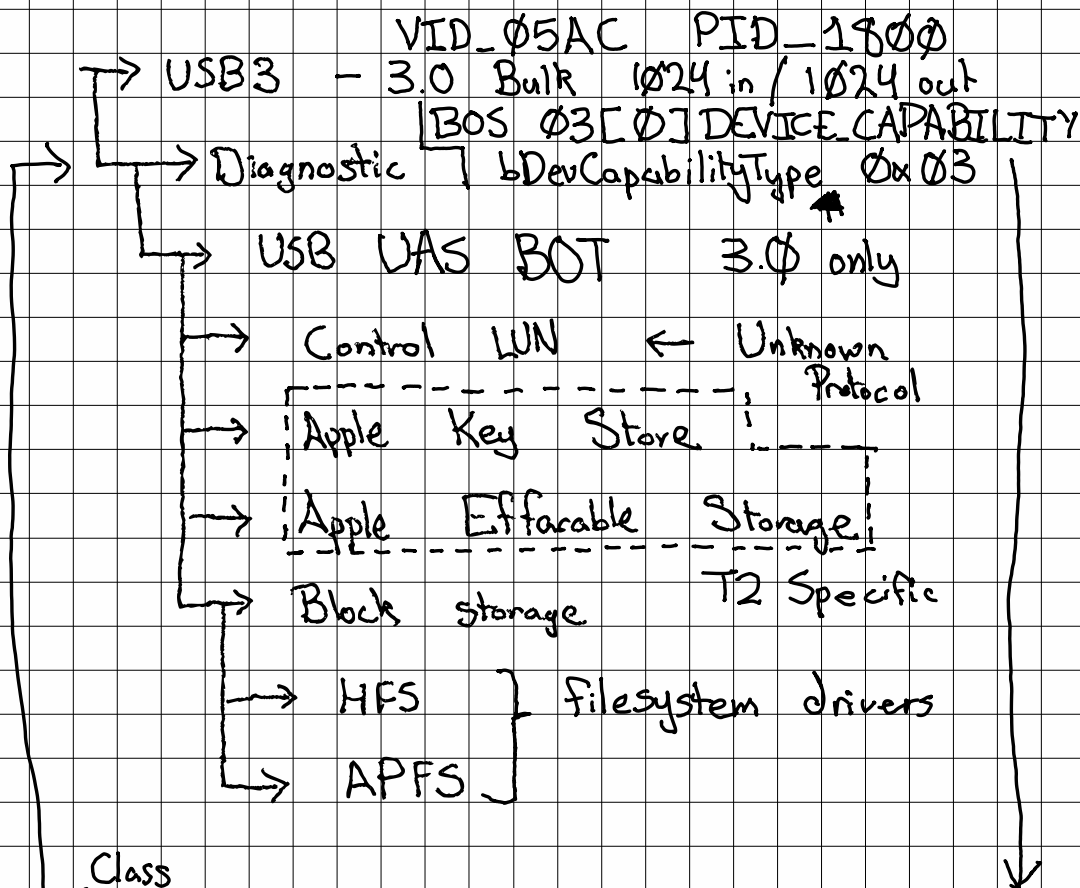 VID_Ø5AC PID_18ØØ
USB3 - 3.0 Bulk 1Ø24 in / 1Ø24 out
BOS Ø3[Ø] DEVICE_CAPABILITY
Diagnostic bDevCapabilityType Øx Ø3
USB UAS BOT 3.Ø only
Control LUN ← Unknown
Protocol
Apple Key Store
Apple Effacable Storage
T2 Specific
Block storage
HFS filesystem drivers
APFS
Class